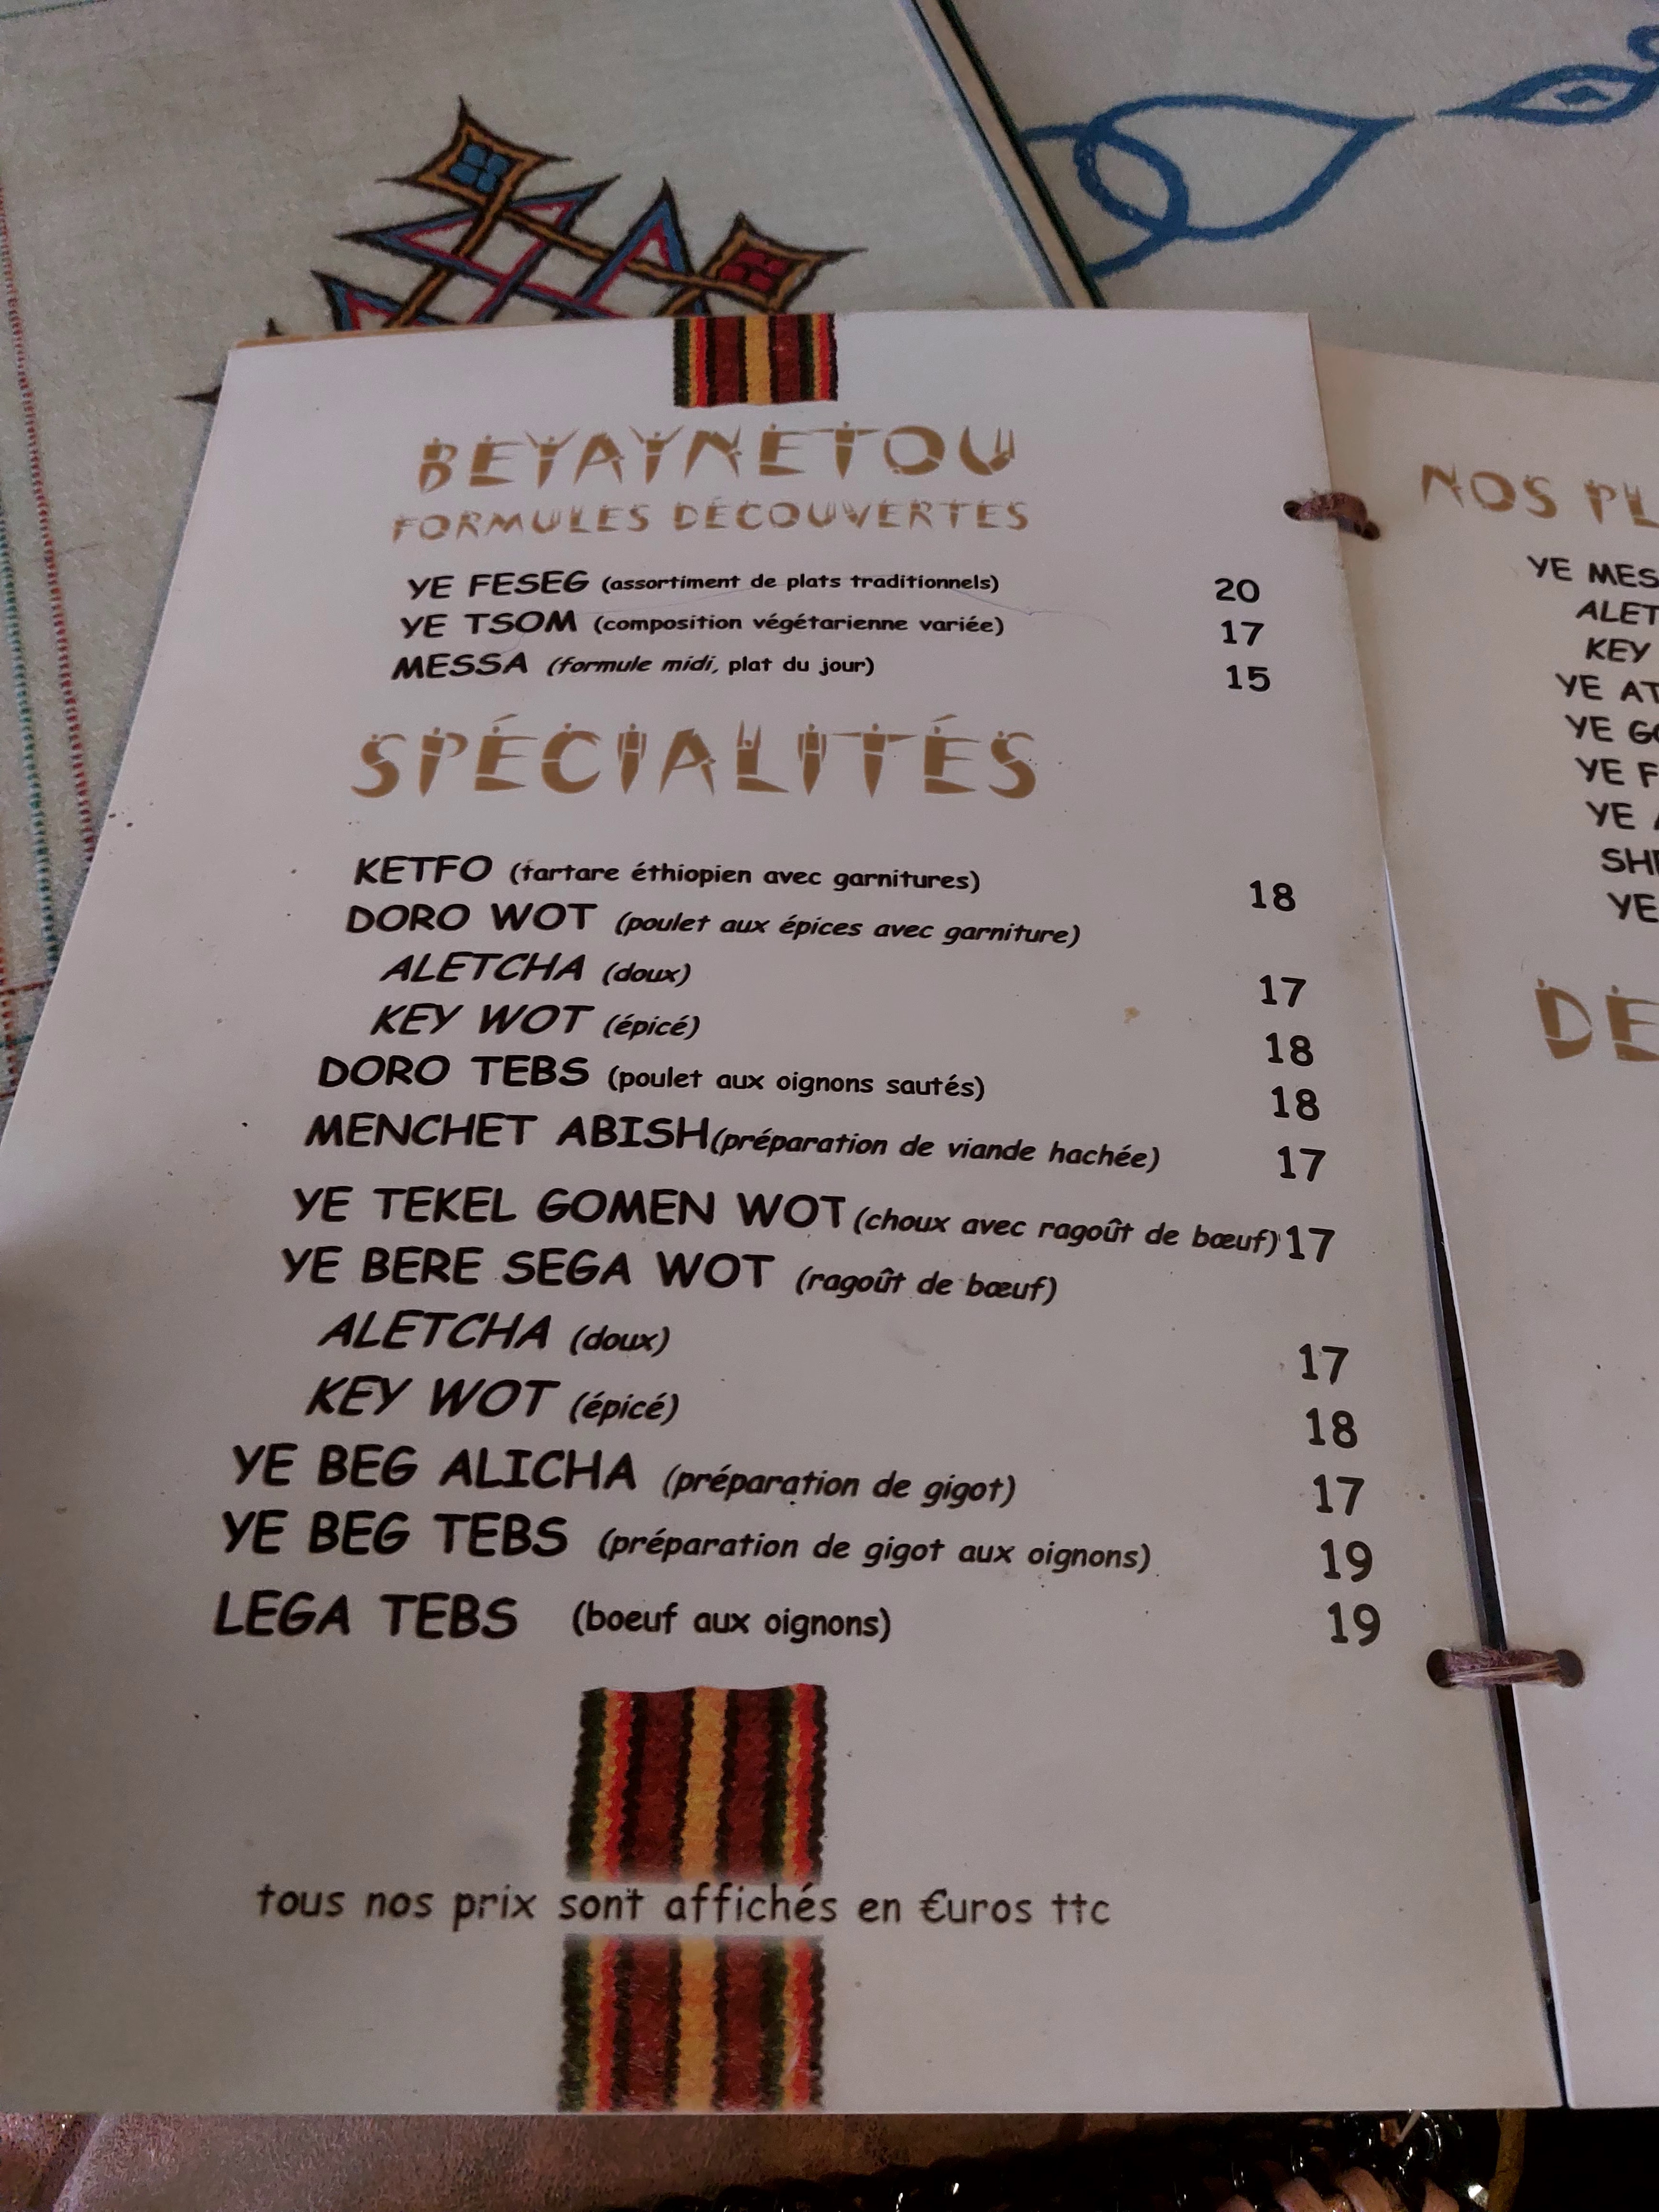 BEYAYNETOU
FORMULES DÉCOUVERTES
YE FESEG (assortiment de plats traditionnels) 20
YE TSOM (composition végétarienne variée) 17
MESSA (formule midi, plat du jour) 15
SPÉCIALITÉS
KETFO (tartare éthiopien avec garnitures) 18
DORO WOT (poulet aux épices avec garniture)
ALETCHA (doux) 17
KEY WOT (épicé) 18
DORO TEBS (poulet aux oignons sautés) 18
MENCHET ABISH(préparation de viande hachée) 17
YE TEKEL GOMEN WOT (choux avec ragoût de bœuf) 17
YE BERE SEGA WOT (ragoût de bœuf)
ALETCHA (doux) 17
KEY WOT (épicé) 18
YE BEG ALICHA (préparation de gigot) 17
YE BEG TEBS (préparation de gigot aux oignons) 19
LEGA TEBS (boeuf aux oignons) 19
tous nos prix sont affichés en €uros ttc
NOS
YE
KEY
YE
YE
YE
YE
YE